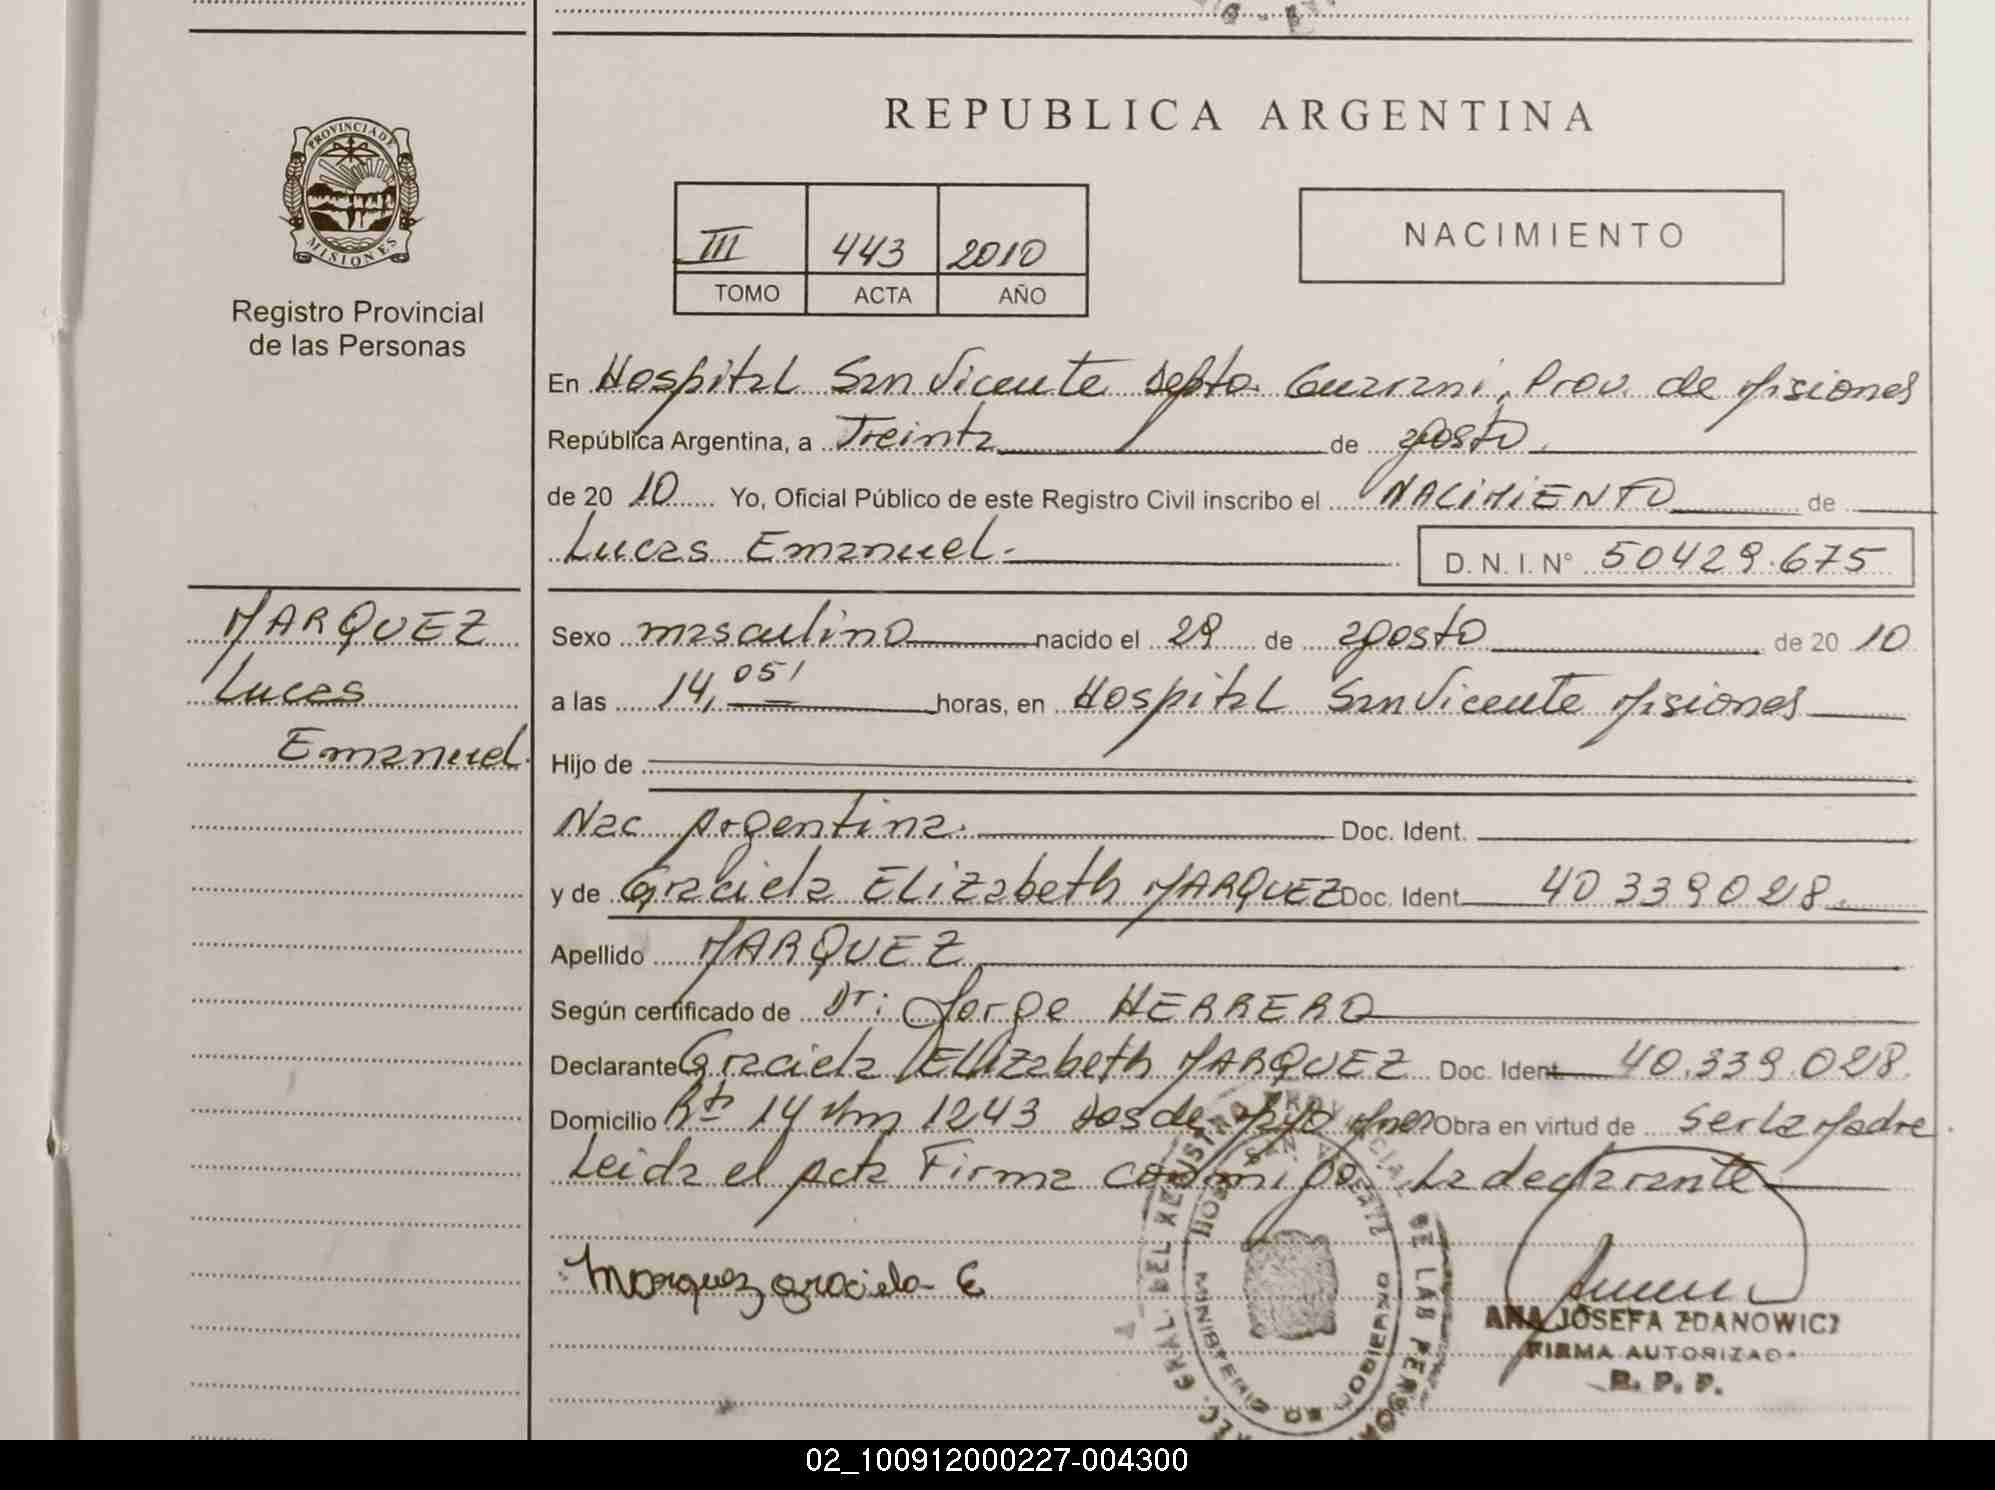 PROVINCIA DE
MISIONES
Registro Provincial
de las Personas
MARQUEZ
Lucas
Emanuel
REPUBLICA ARGENTINA
III 443 2010
TOMO ACTA AÑO
NACIMIENTO
En Hospital San Vicente Depto. Guarani, Prov. de Misiones
República Argentina, a Treinta de agosto
de 20 10 Yo, Oficial Público de este Registro Civil inscribo el NACIMIENTO de
Lucas Emanuel.-
D. N. I. N° 50429.675
Sexo masculino nacido el 29 de agosto de 20 10
a las 14, 05' horas, en Hospital San Vicente Misiones
Hijo de
Nac Argentina. Doc. Ident.
y de Graciela Elizabeth MARQUEZ Doc. Ident. 40 339 028
Apellido MARQUEZ
Según certificado de Dr: Jorge HERRERO
Declarante Graciela Elizabeth MARQUEZ Doc. Ident. 40.339.028
Domicilio Rta 14 Km 1243 Obra en virtud de ser la Madre
Leida el Acta Firma conmigo La declarante
Marquez graciela E
ANA JOSEFA ZDANOWICZ
FIRMA AUTORIZADA
R. P. P.
02_100912000227-004300